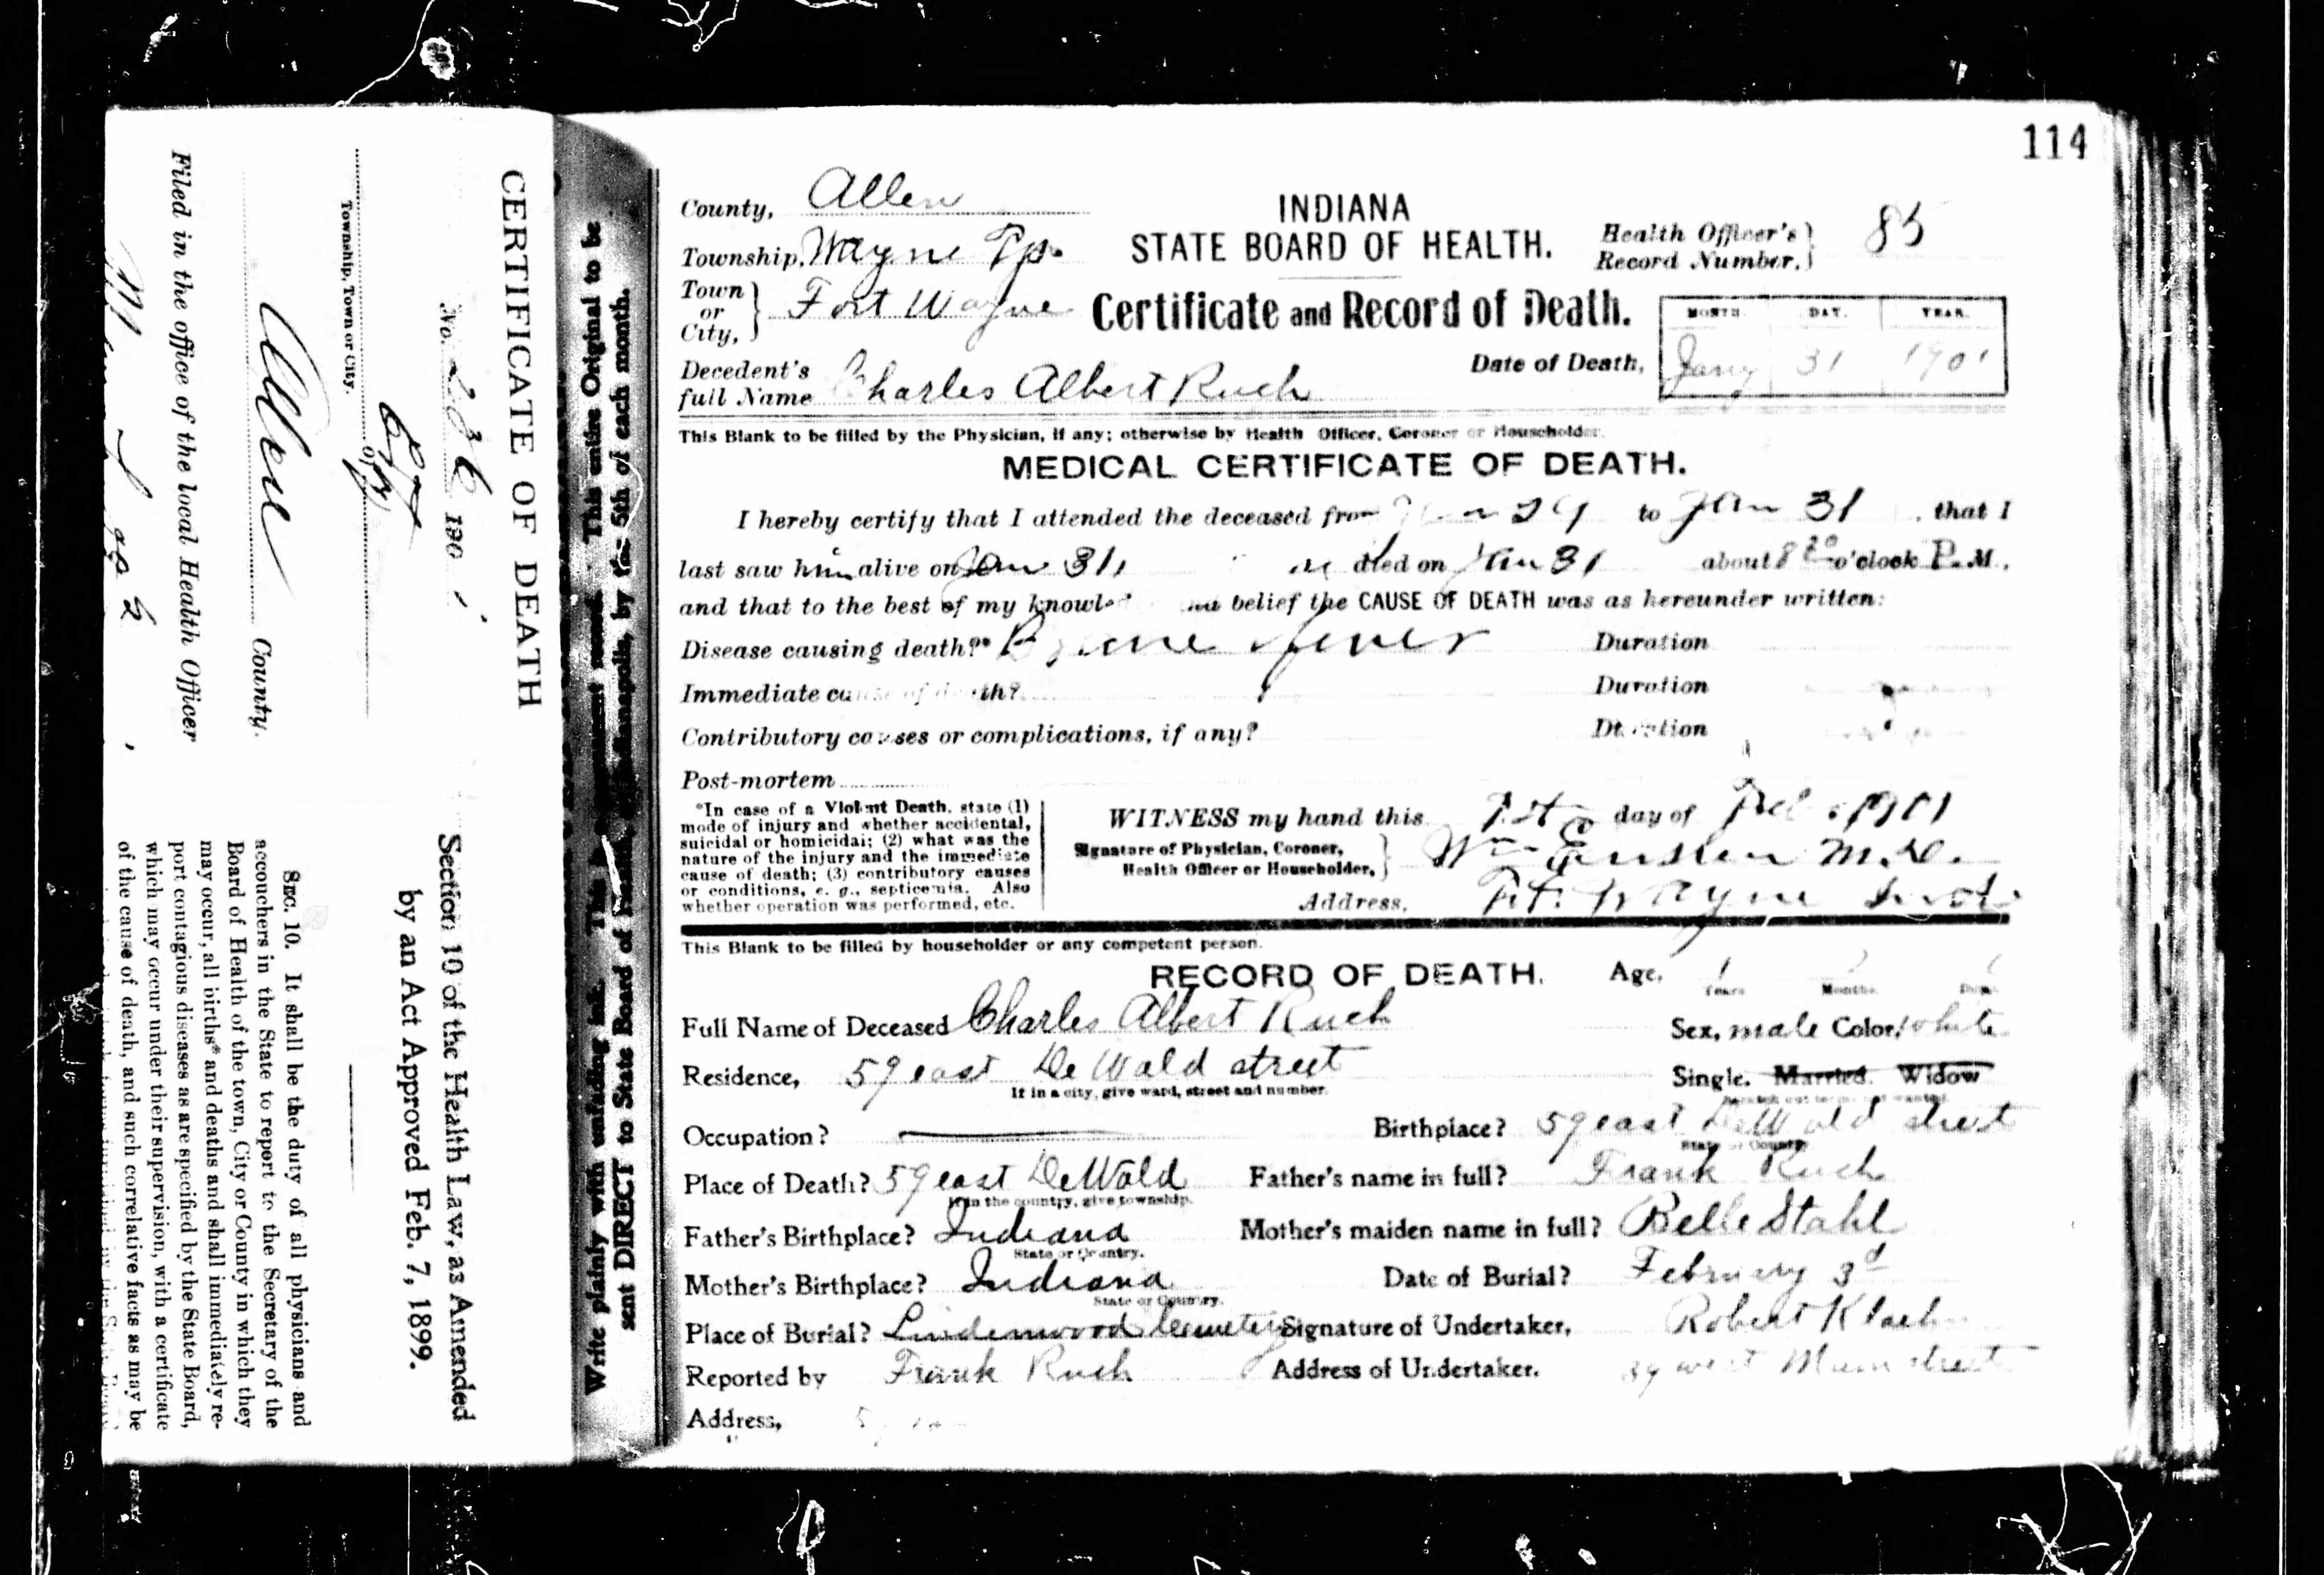 114
County, Allen
INDIANA
STATE BOARD OF HEALTH.
Health Officer's Record Number, 85
Township, Wayne Tp.
Town or City, Fort Wayne
Certificate and Record of Death.
MONTH. DAY. YEAR.
Decedent's full Name Charles Albert Ruch
Date of Death, Jany 31 1901
This Blank to be filled by the Physician, if any; otherwise by Health Officer, Coroner or Householder.
MEDICAL CERTIFICATE OF DEATH.
I hereby certify that I attended the deceased from 29 to Jan 31, that I
last saw him alive on Jan 31, died on Jan 31 about 8 o'clock P. M.,
and that to the best of my belief the CAUSE OF DEATH was as hereunder written:
Disease causing death?* Duration
Immediate cause of death? Duration
Contributory causes or complications, if any? Duration
Post-mortem
*In case of a Violent Death, state (1)
mode of injury and whether accidental,
suicidal or homicidal; (2) what was the
nature of the injury and the immediate
cause of death; (3) contributory causes
or conditions, e. g., septicemia. Also
whether operation was performed, etc.
WITNESS my hand this 1st day of Feb. 1901
Signature of Physician, Coroner,
Health Officer or Householder, Wm M.D.
Address, Ft. Wayne Ind.
This Blank to be filled by householder or any competent person.
RECORD OF DEATH. Age, 1
Years Months. Days
Full Name of Deceased Charles Albert Ruch
Sex, male Color, white
Residence, 59 east De Wald street
If in a city, give ward, street and number.
Single. Married. Widow
Occupation?
Birthplace? 59 east DeWald street
State or Country.
Place of Death? 59 east DeWald
If in the country, give township.
Father's name in full? Frank Ruch
Father's Birthplace? Indiana
State or Country.
Mother's maiden name in full? Belle Stahl
Mother's Birthplace? Indiana
State or Country.
Date of Burial? February 3d
Place of Burial? Lindenwood Cemetery
Signature of Undertaker, Robert Klaehn
Reported by Frank Ruch
Address of Undertaker. 39 west Main street
Address,
Write plainly with unfading ink. This is a permanent record. This entire Original to be
sent DIRECT to State Board of Health, Indianapolis, by the 5th of each month.
CERTIFICATE OF DEATH
No. 236 190 1
of
Township, Town or City.
Allen County.
Filed in the office of the local Health Officer
Section 10 of the Health Law, as Amended
by an Act Approved Feb. 7, 1899.
SEC. 10. It shall be the duty of all physicians and
accouchers in the State to report to the Secretary of the
Board of Health of the town, City or County in which they
may occur, all births* and deaths and shall immediately re-
port contagious diseases as are specified by the State Board,
which may occur under their supervision, with a certificate
of the cause of death, and such correlative facts as may be